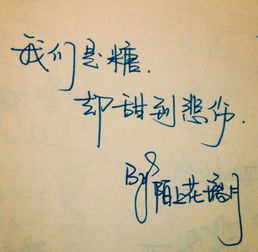 我们是糖.
却甜到悲伤.
By陌上花璃月